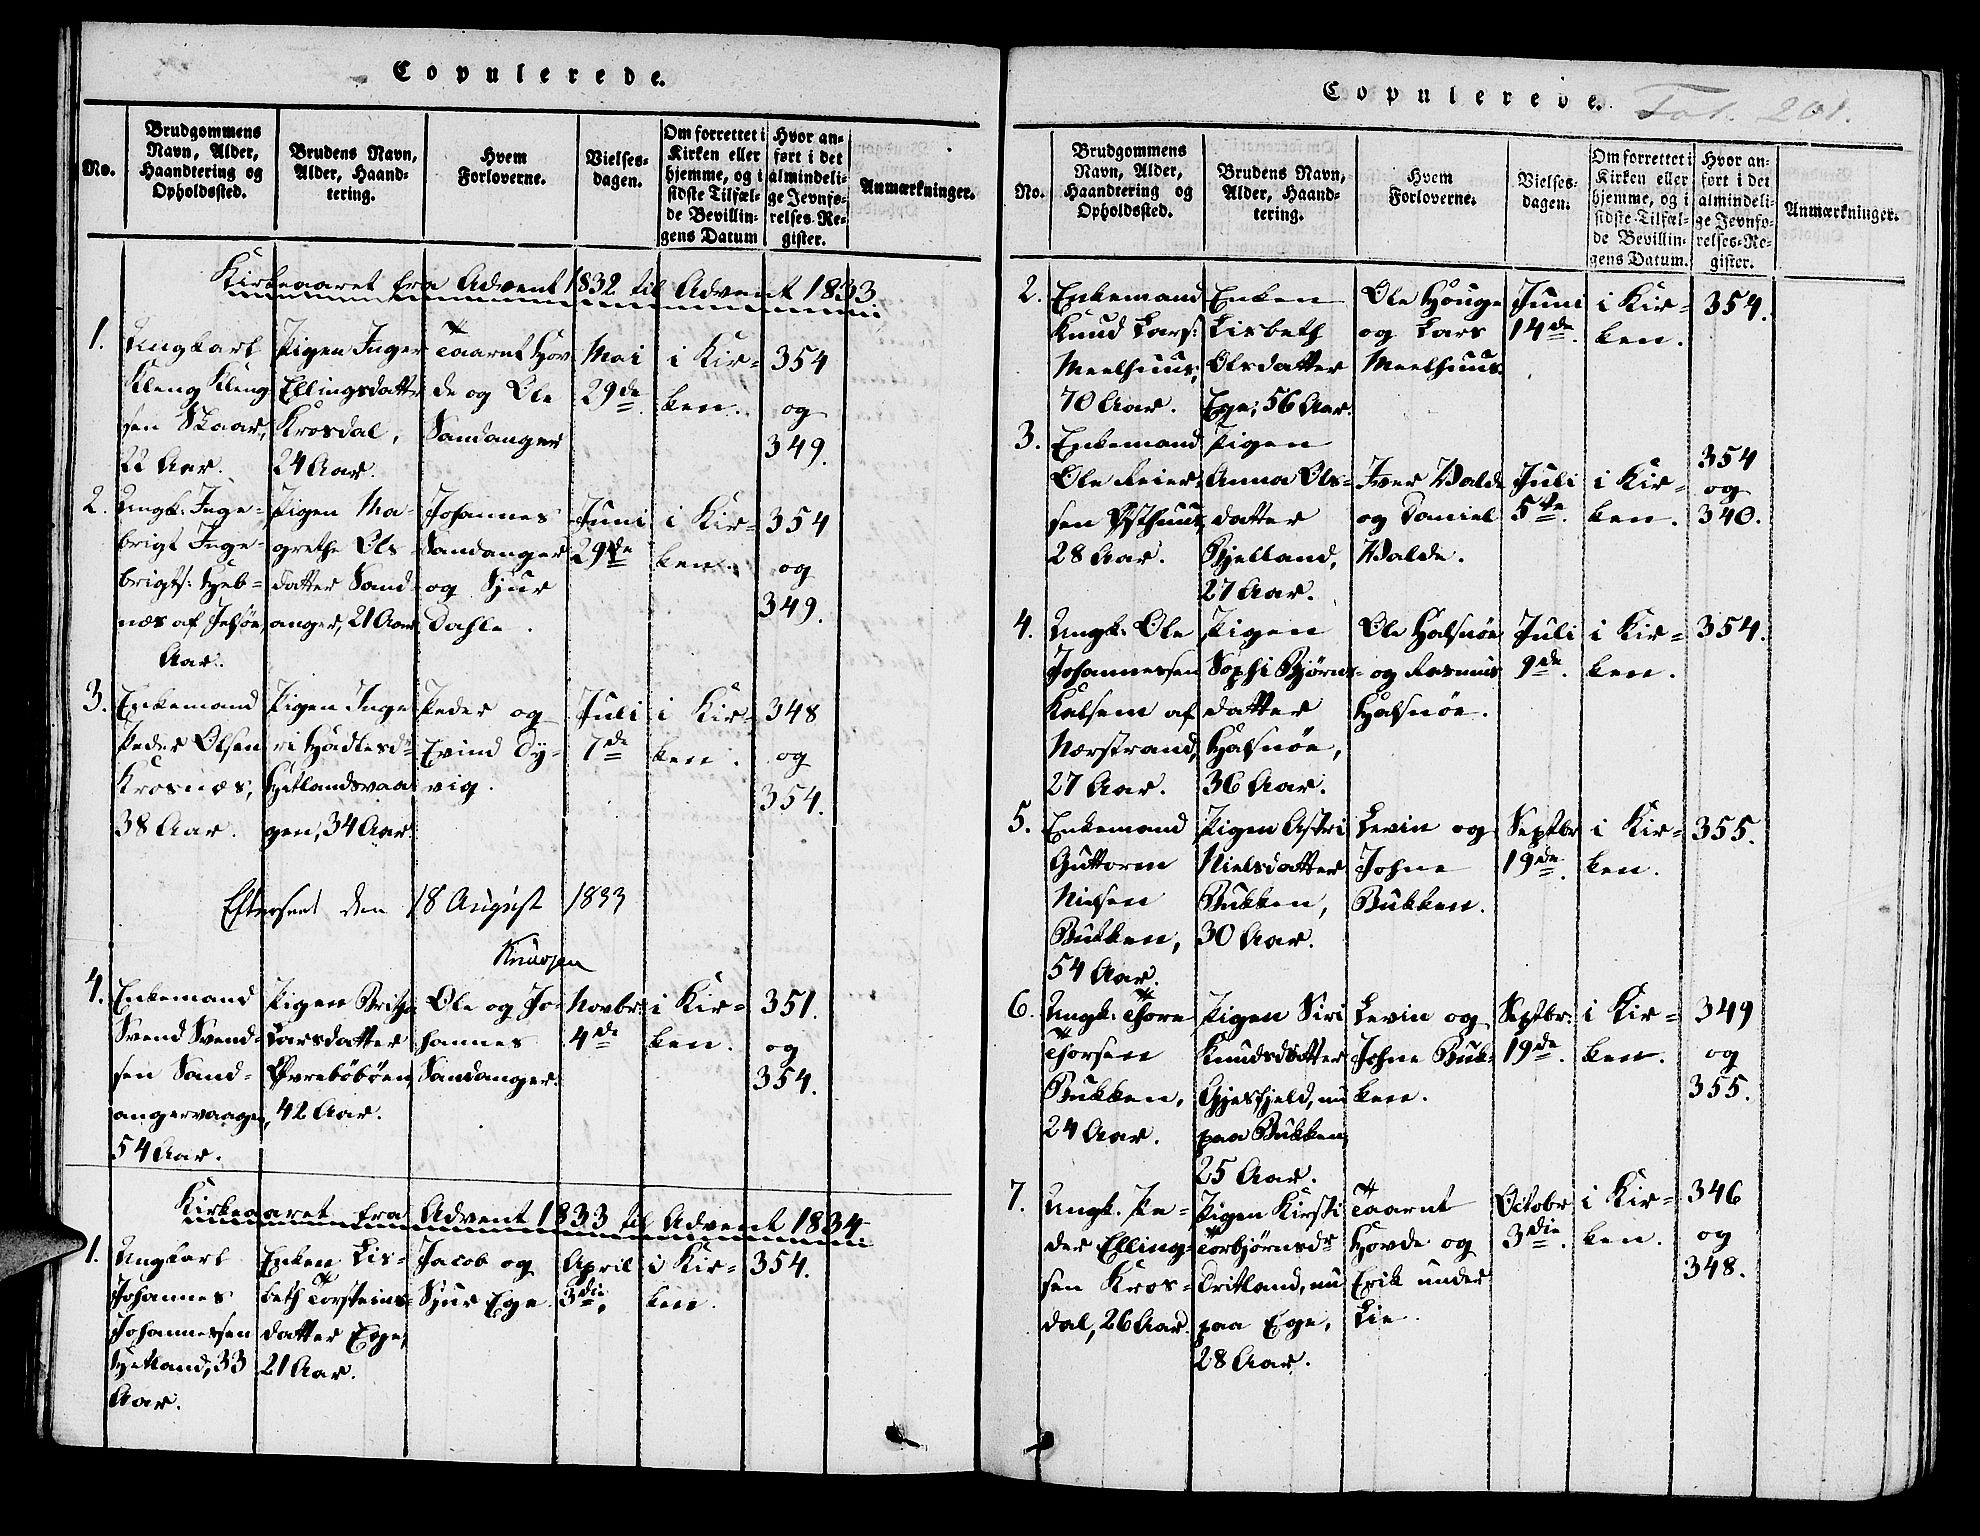 Copulerede.
No.
Brudgommens
Navn, Alder,
Haandtering og
Opholdssted.
Brudens Navn,
Alder, Haand-
tering.
Hvem
Forloverne.
Vielses-
dagen.
Om forrettet i
Kirken eller
hjemme, og i
sidste Tilfæl-
de Bevillin-
gens Datum
Hvor an-
ført i det
almindeli-
ge Jevnfø-
relses-Re-
gister.
Anmærkninger.
Kirkeaaret fra Advent 1832 til Advent 1833.
1.
Ungkarl
Kleng Kleng
sen Skaar,
22 Aar.
Pigen Inger
Ellingsdatter
Krosdal,
24 Aar.
Taarnt Hov
de og Ole
Sandanger
Mai
29de
i Kir-
ken.
354
og
349.
2.
Ungk. Inge-
brigt Inge-
brigts: Heb-
næs af Jelsøe,
Aar.
Pigen Ma-
grethe Ols
datter Sand-
anger, 21 Aar
Johannes
Sandanger
og Sjur
Dahle.
Juni
29de
i Kir-
ken.
354
og
349.
3.
Enkemand
Peder Olsen
Krosnæs,
38 Aar.
Pigen Inge
ri Hadlesdr
Hetlandsvaa
gen, 34 Aar.
Peder og
Evind Dy-
vig.
Juli
7de
i Kir-
ken.
348
og
354.
Efterseet den 18 August 1833
4.
Enkemand
Svend Svend-
sen Sand-
angervaagen,
54 Aar.
Pigen Britha
Larsdatter
Øvrebøbøen
42 Aar.
Ole og Jo-
hannes
Sandanger.
Novbr:
4de
i Kir-
ken.
351.
og
354.
Kirkeaaret fra Advent 1833 til Advent 1834.
1.
Ungkarl
Johannes
Johannessen
Hetland, 33
Aar.
Enken Lis-
beth Torsteins-
datter Ege,
21 Aar.
Jacob og
Sjur Ege.
April
3die.
i Kir-
ken.
354.
Copulerede.
Fol. 201.
No.
Brudgommens
Navn, Alder,
Haandtering og
Opholdssted.
Brudens Navn,
Alder, Haand-
tering.
Hvem
Forloverne.
Vielses-
dagen.
Om forrettet i
Kirken eller
hjemme, og i
sidste Tilfæl-
de Bevillin-
gens Datum.
Hvor an-
ført i det
almindeli-
ge Jevnfø-
relses-Re-
gister.
Anmærkninger.
2.
Enkemand
Knud Lars:
Meelhuus,
70 Aar.
Enken
Lisbeth
Olsdatter
Ege, 56 Aar.
Ole Houge
og Lars
Meelhuus.
Juni
14de.
i Kir-
ken.
354.
3.
Enkemand
Ole Reier-
sen Østhuus,
28 Aar.
Pigen
Anna Ols-
datter
Bjelland,
27 Aar.
Iver Walde
og Daniel
Walde.
Juli
5te.
i Kir-
ken.
354
og
340.
4.
Ungk. Ole
Johannessen
Kalsem af
Nærstrand,
27 Aar.
Pigen
Sophi Bjørns-
datter
Halsnøe,
36 Aar.
Ole Halsnøe
og Rasmus
Halsnøe.
Juli
9de.
i Kir-
ken.
354.
5.
Enkemand
Guttorm
Nielsen
Bukken,
54 Aar.
Pigen Astri
Nielsdatter
Bukken,
30 Aar.
Levin og
Johne
Bukken.
Septbr
19de.
i Kir-
ken.
355.
6.
Ungk. Thore
Thorsen
Bukken,
24 Aar.
Pigen Siri
Knudsdatter
Gjesfjeld, nu
paa Bukken,
25 Aar.
Levin og
Johne Buk-
ken.
Septbr:
19de.
i Kir-
ken.
349
og
355.
7.
Ungk. Pe-
der Elling-
sen Kros-
dal, 26 Aar.
Pigen Kirsti
Torbjørnsdr
Tritland, nu
paa Ege,
28 Aar.
Taarnt
Hovde og
Erik under
Lie.
Octobr
3die.
i Kir-
ken.
346
og
348.